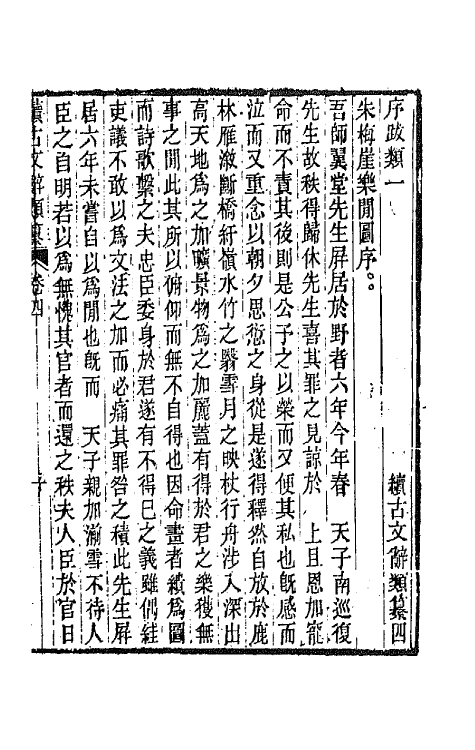 序跋類一　續古文辭類纂四
朱梅崖樂閒圖序
吾師翼堂先生屏居於野者六年今年春　天子南巡復
先生故秩得歸休先生喜其罪之見諒於　上且恩加寵
命而不責其後則是公子之以榮而又便其私也既感而
泣而又重念以朝夕思愆之身從是遂得釋然自放於鹿
林雁漵斷橋紆嶺水竹之翳雪月之映杖行舟涉入深出
高天地爲之加曠景物爲之加麗蓋有得於君之樂獲無
事之閒此其所以俯仰而無不自得也因命畫者績爲圖
而詩歌繫之夫忠臣委身於君遂有不得已之義雖偶絓
吏議不敢以爲文法之加而必痛其罪咎之積此先生屏
居六年未嘗自以爲閒也既而　天子親加湔雪不待人
臣之自明若以爲無愧其官者而還之秩夫人臣於官日
續古文辭類纂　卷四